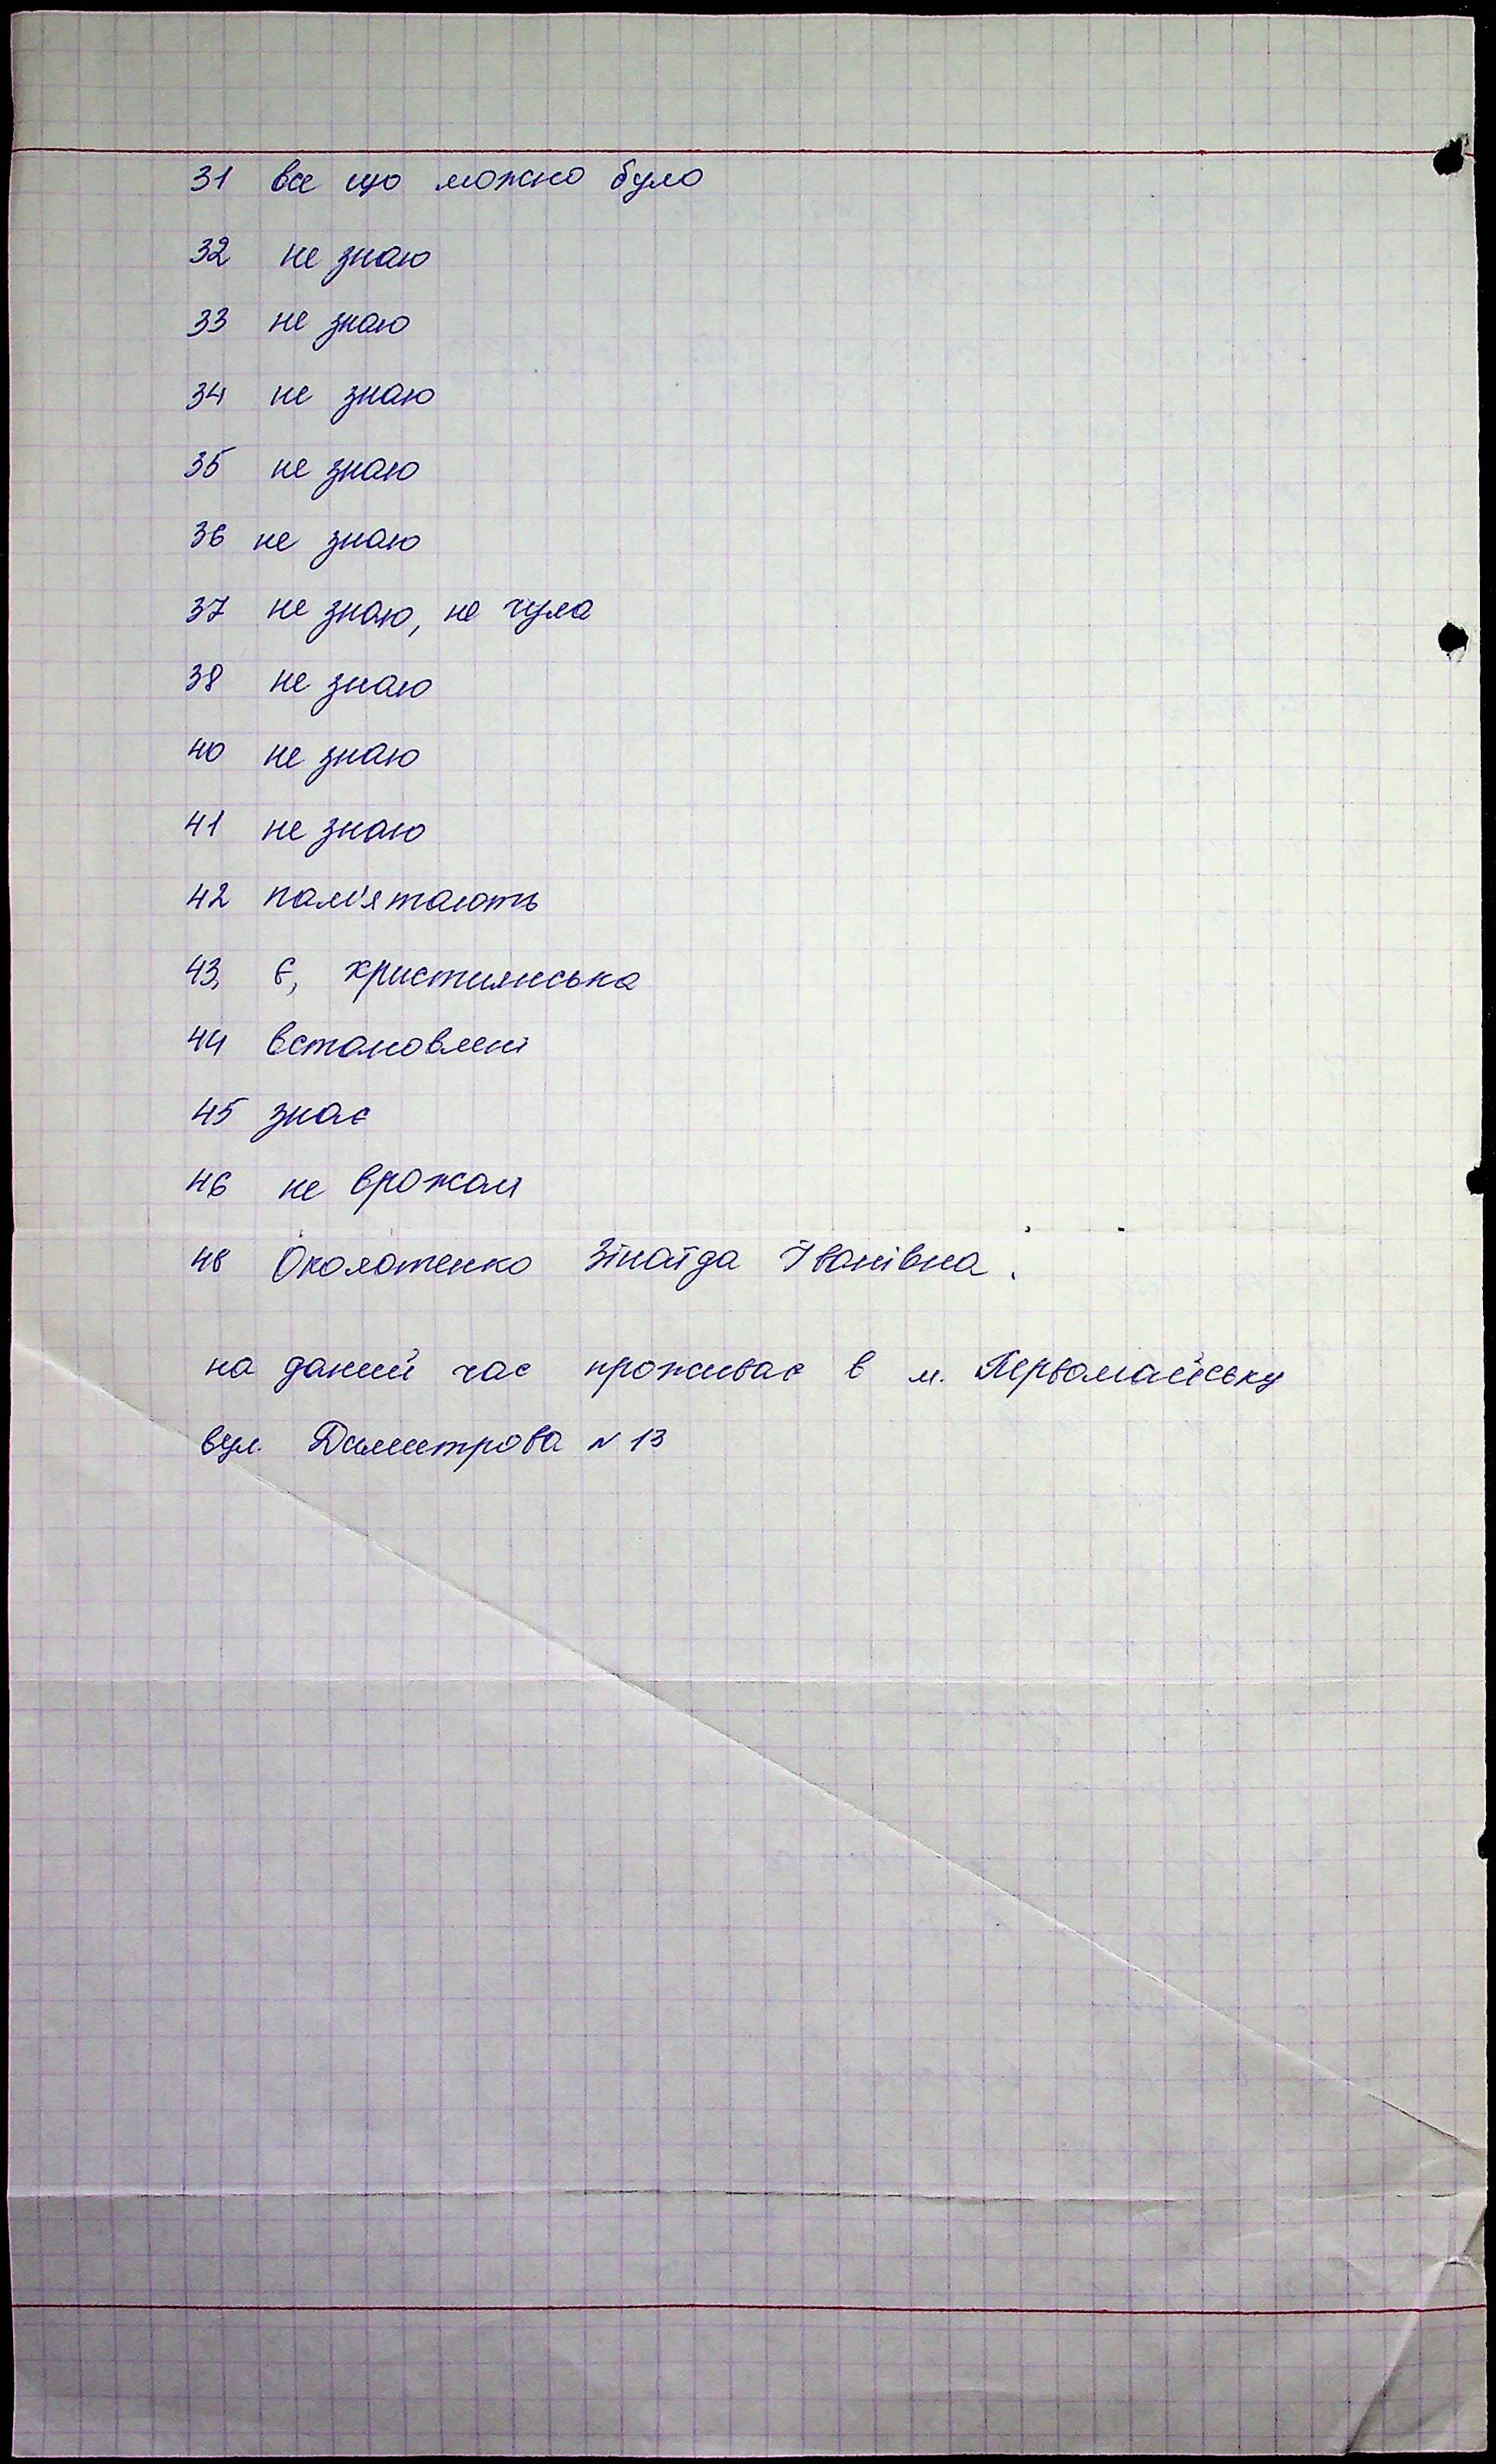 31 все що можно було
32 не знаю
33 не знаю
34 не знаю
35 не знаю
36 не знаю
37 не знаю, не чула
38 не знаю
40 не знаю
41 не знаю
42 пам'ятають
43, є, християнська
44 встановлені
45 знає
46 не врожай
48 Околотенко Зінаїда Іванівна.
на даний час проживає в м. Первомайську
вул. Димитрова N 13